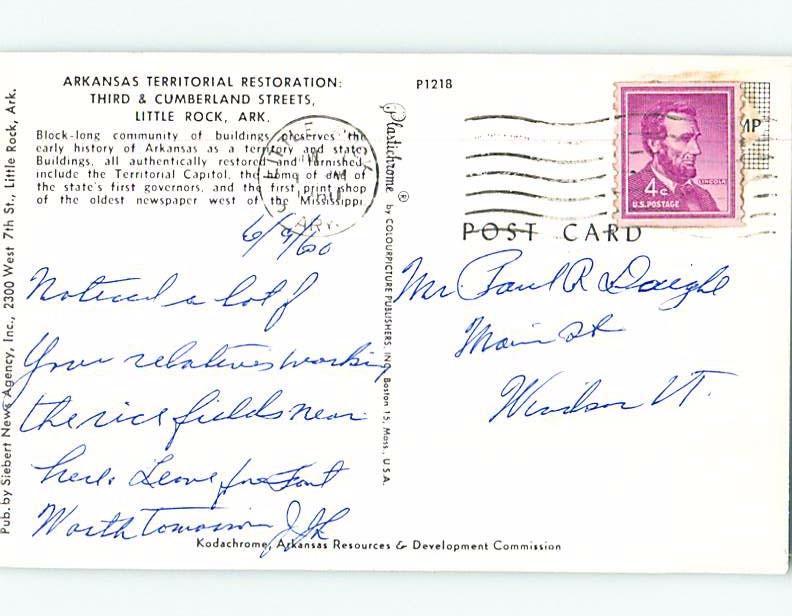 ARKANSAS TERRITORIAL RESTORATION:
THIRD & CUMBERLAND STREETS,
LITTLE ROCK, ARK.
Block-long community of buildings preserves the
early history of Arkansas as a territory and state.
Buildings, all authentically restored and furnished,
include the Territorial Capitol, the home of one of
the state's first governors, and the first print shop
of the oldest newspaper west of the Mississippi.
6/9/60
Noticed a lot of
Your relatives working
the rice fields near
here. Leave for Fort
Worth Tomorrow
Pub. by Siebert News Agency, Inc., 2300 West 7th St., Little Rock, Ark.
Plastichrome ® by COLOURPICTURE PUBLISHERS, INC. Boston 15, Mass., U.S.A.
P1218
4c
LINCOLN
U.S. POSTAGE
MP
POST CARD
Mr. Paul R Daigle
Main St
Windsor VT.
Kodachrome, Arkansas Resources & Development Commission